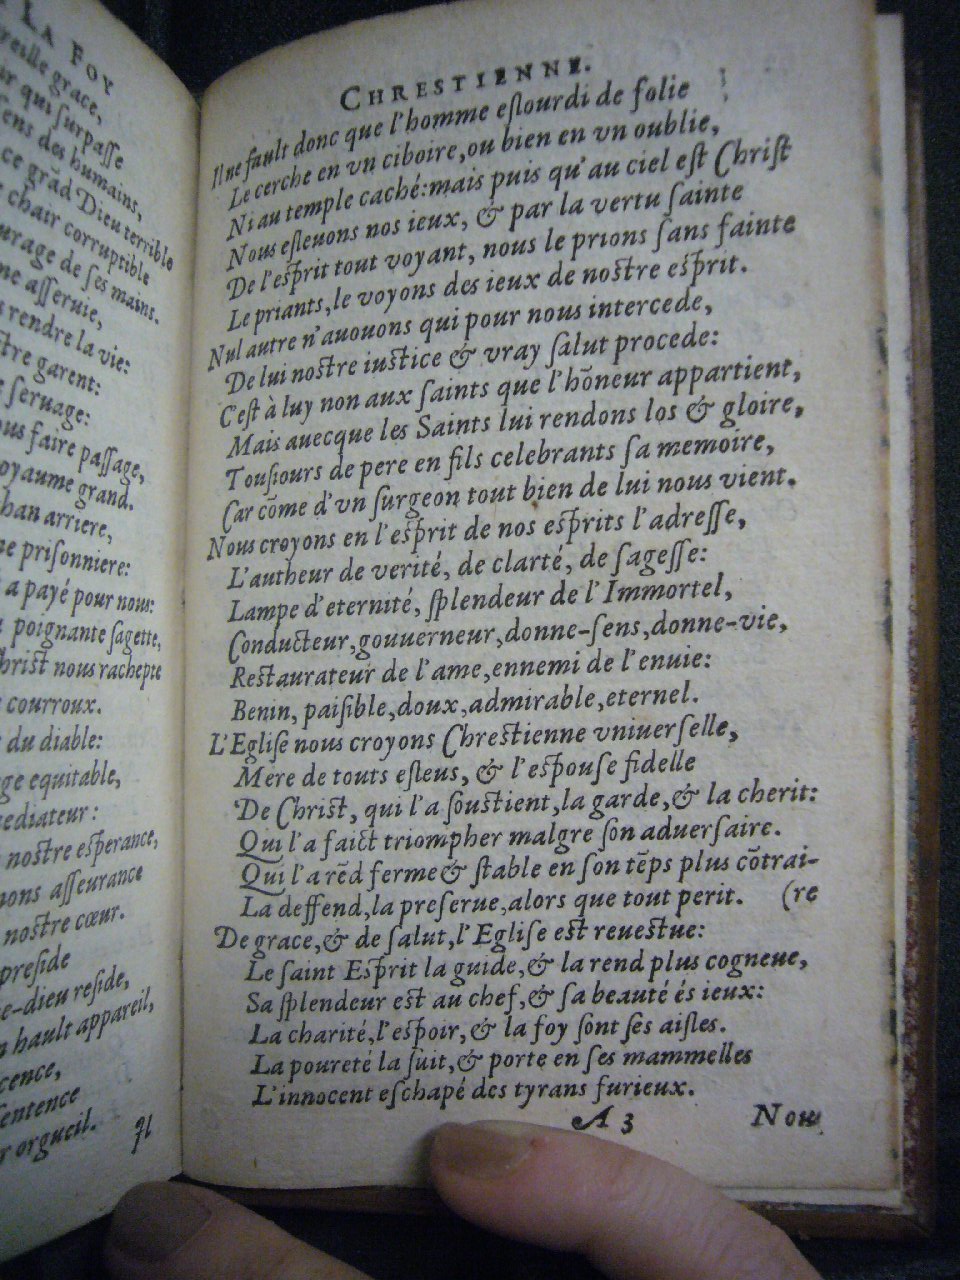 LA FOY
reille grace,
ir qui ſurpaſſe
ſens des humains,
ce grãd Dieu terrible
chair corruptible
urage de ſes mains.
ne aſſeruie,
rendre la vie:
ſtre garent:
ſeruage:
ous faire paſſage,
oyaume grand.
han arriere,
ne priſonniere:
a payé pour nous:
poignante ſagette,
hriſt nous rachepte
courroux.
du diable:
ge equitable,
ediateur:
noſtre eſperance,
nons aſſeurance
noſtre cœur.
preſide
e-dieu reſide,
hault appareil,
cence,
ſentence
r orgueil.
Il
CHRESTIENNE.
Il ne fault donc que l'homme eſlourdi de folie
Le cerche en vn ciboire, ou bien en vn oublie,
Ni au temple caché: mais puis qu'au ciel eſt Chriſt
Nous eſleuons nos ieux, & par la vertu ſainte
De l'eſprit tout voyant, nous le prions ſans fainte
Le priants, le voyons des ieux de noſtre eſprit.
Nul autre n'auouons qui pour nous intercede,
De lui noſtre iuſtice & vray ſalut procede:
C'eſt à luy non aux ſaints que l'hõneur appartient,
Mais auecque les Saints lui rendons los & gloire,
Touſiours de pere en fils celebrants ſa memoire,
Car cõme d'vn ſurgeon tout bien de lui nous vient.
Nous croyons en l'eſprit de nos eſprits l'adreſſe,
L'autheur de verité, de clarté, de ſageſſe:
Lampe d'eternité, ſplendeur de l'Immortel,
Conducteur, gouuerneur, donne-ſens, donne-vie,
Reſtaurateur de l'ame, ennemi de l'enuie:
Benin, paiſible, doux, admirable, eternel.
L'Egliſe nous croyons Chreſtienne vniuerſelle,
Mere de touts eſleus, & l'eſpouſe fidelle
De Chriſt, qui l'a ſouſtient, la garde, & la cherit:
Qui l'a faict triompher malgre ſon aduerſaire.
Qui l'a rẽd ferme & ſtable en ſon tẽps plus cõtrai-
La deffend, la preſerue, alors que tout perit. (re
De grace, & de ſalut, l'Egliſe eſt reueſtue:
Le ſaint Eſprit la guide, & la rend plus cogneue,
Sa ſplendeur eſt au chef, & ſa beauté és ieux:
La charité, l'eſpoir, & la foy ſont ſes aiſles.
La poureté la ſuit, & porte en ſes mammelles
L'innocent eſchapé des tyrans furieux.
A 3 Nous